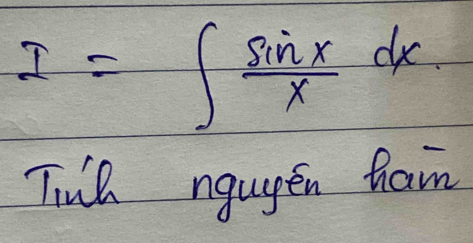 I = ∫ sin x / x dx.
Tính nguyên hàm